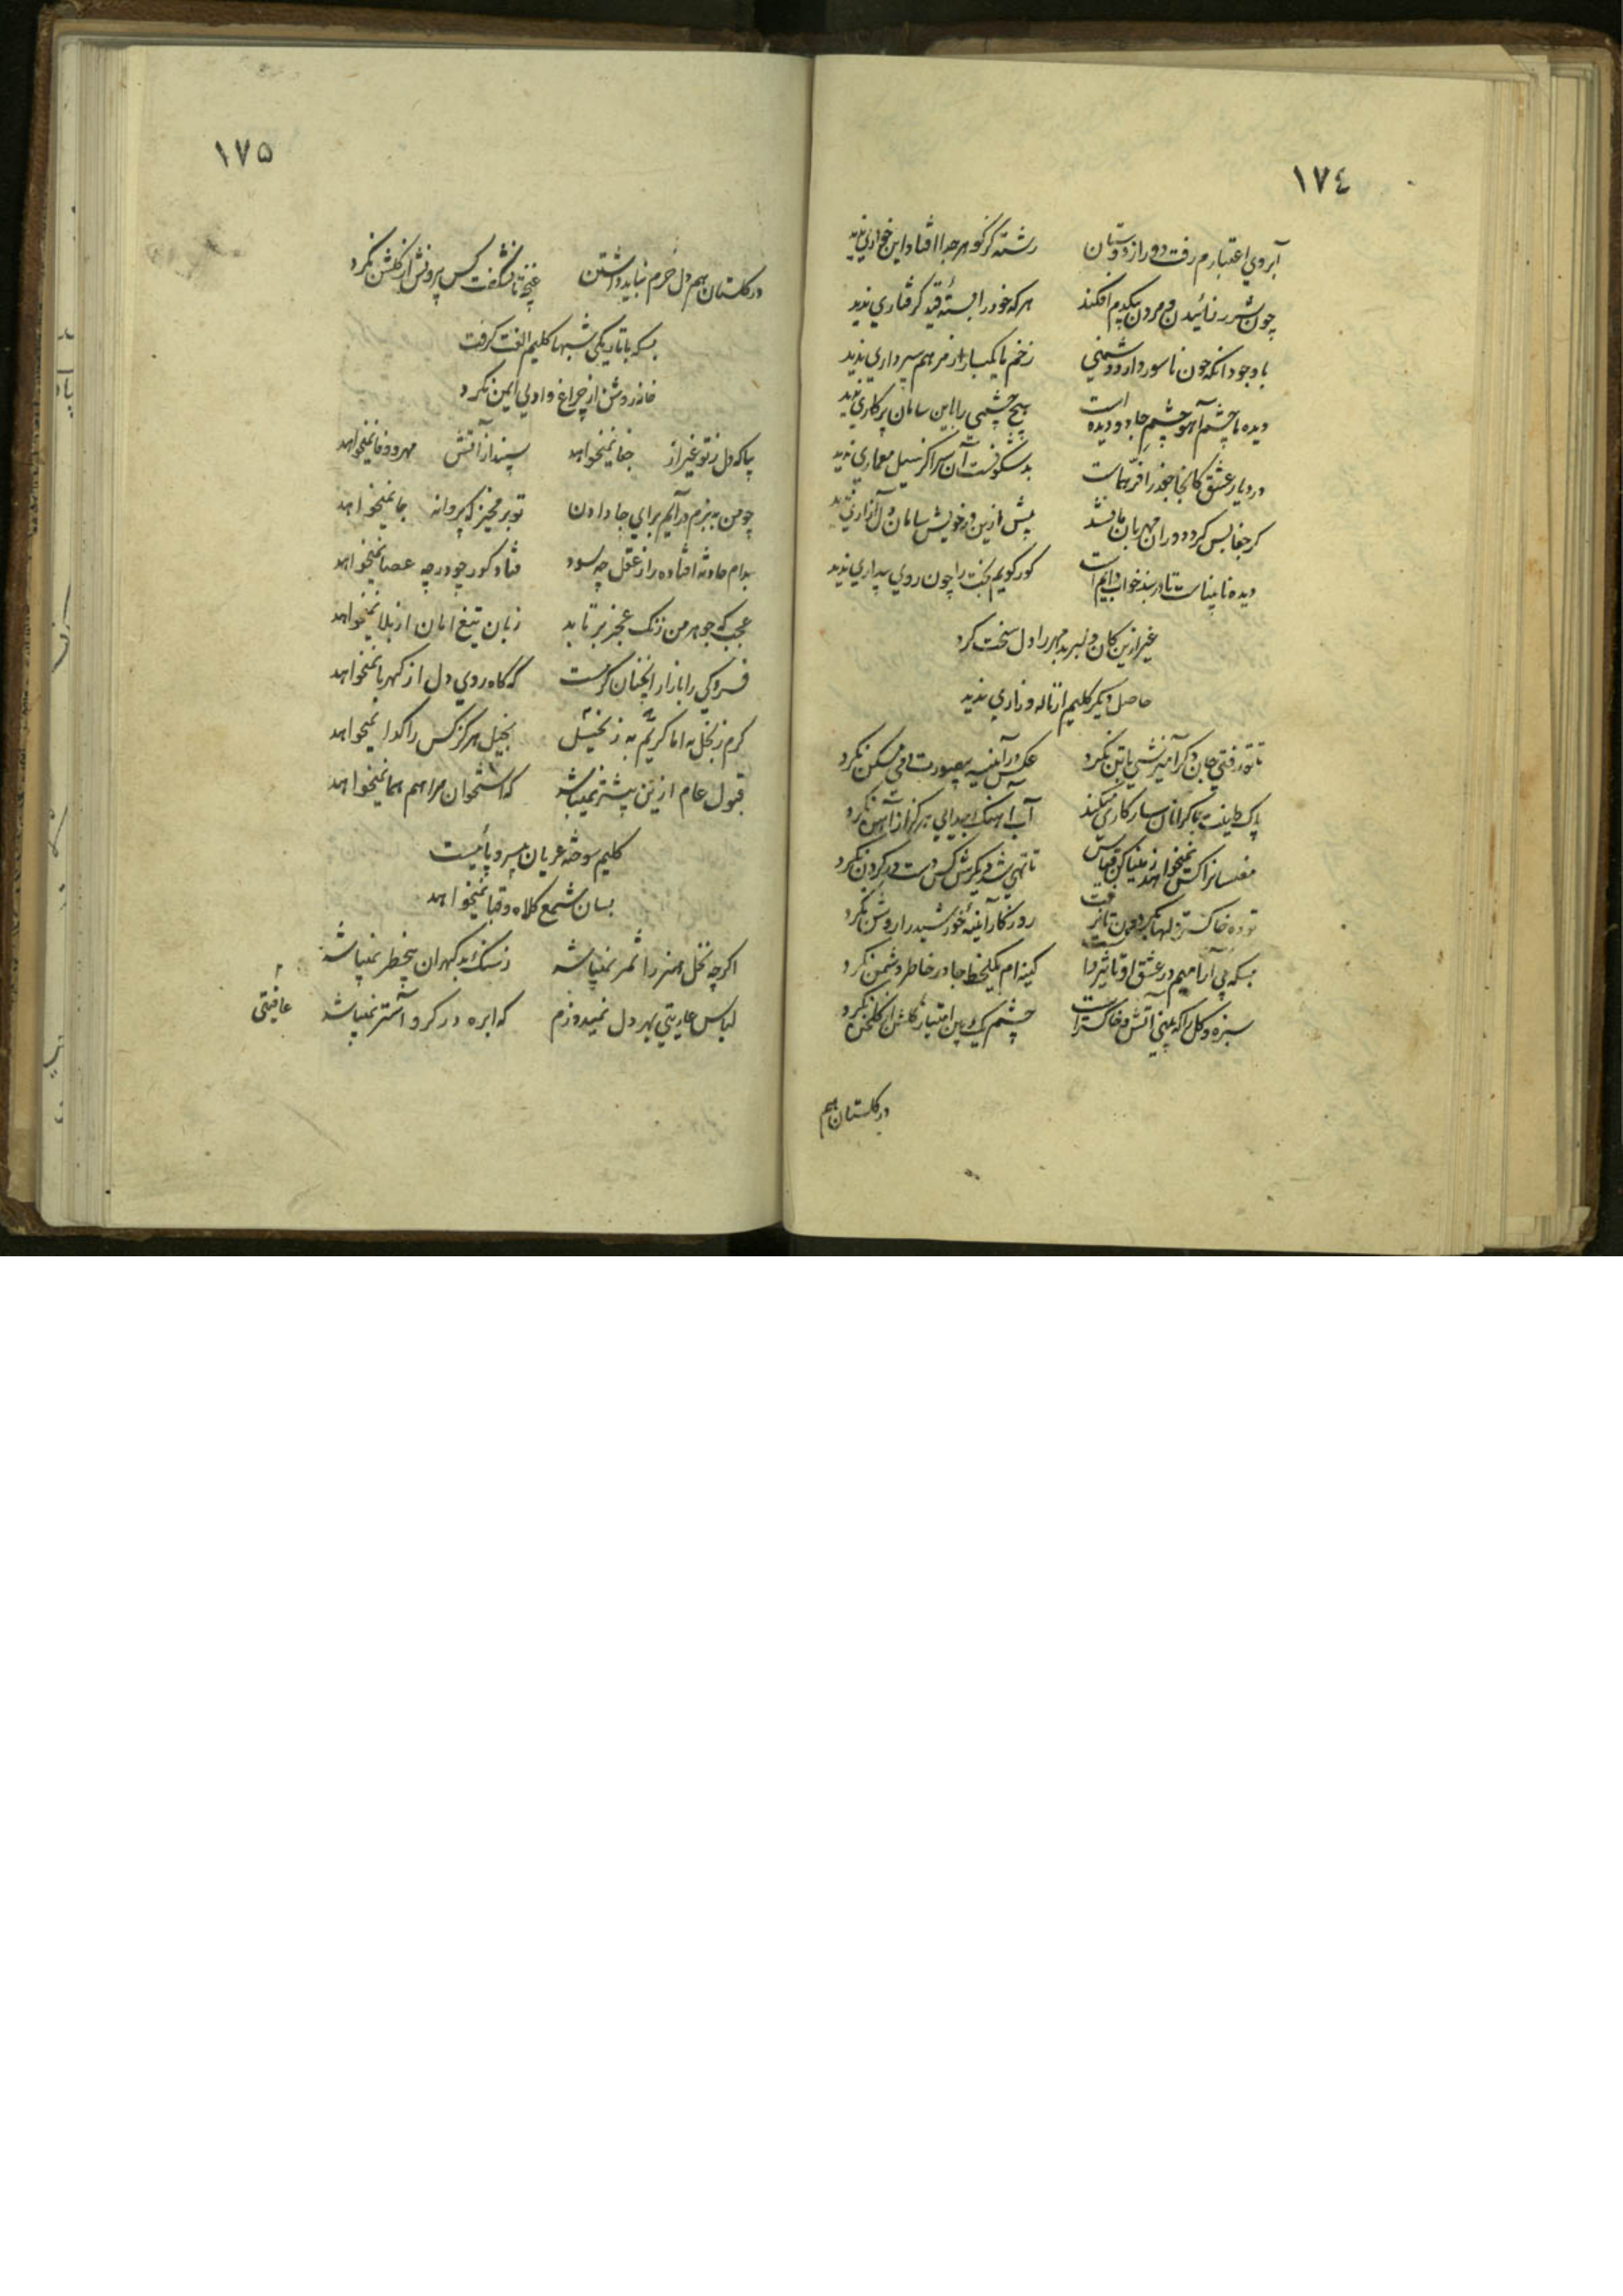 ١٧٤
آبروي اعتبارم رفت دور از دوستان رشته کز گوهر جدا افتاد این خواري ندید
چون شرر زائیدن و مردن بیکدم افکند هر که خود را بستهٔ قید گرفتاري ندید
با وجود آنکه چون ناسور دارد دشمني زخم ما یکبار از مرهم سپرداري ندید
دیده ما چشم آهو چشم جادو دیده است هیچ چشمي را باین سامان پرکاري ندید
در دیار عشق کانجا جغد را فر هماست بد شگونست آن سرا کز سیل معماري ندید
کر جفا بس کرد دوران مهربان ما نشد پیش ازین در خویش سامان دل آزاري ندید
دیده نابیناست تا در بند خواب دایم است کور گویم بخت را چون روي بیداري ندید
غیر ازین کان دلبر بد مهر را دل سخت کرد
حاصل دیگر کلیم از ناله و زاري ندید
تا تو رفتي جان دگر آمیزشي با تن نکرد عکس در آئینه بیصورت دمي مسکن نکرد
پاک طینت با گرانان سازگاري میکند آب آهنگ جدایي هرگز از آهن نکرد
مفلسانرا کس نمیخواهد ز مینا کن قیاس تا تهي شد دیگرش کس دست در گردن نکرد
تودهٔ خاکستر دلها بگردون تا نرفت روزگار آئینهٔ خورشید را روشن نکرد
بسکه بي آرامیم در عشق او تاثیر داشت کینه‌ام یکلحظه جا در خاطر دشمن نکرد
سبزه و گل را که بیني آتش و خاکستر است چشم یک بین امتیاز گلشن از گلخن نکرد
در گلستان هم
١٧٥
در گلستان هم دل خرم نباید داشتن غنچه تا نشکفت کس بیرونش از گلشن نکرد
بسکه با تاریکي شبها کلیم الفت گرفت
خانه روشن از چراغ وادي ایمن نکرد
بیا که دل ز تو غیر از جفا نمیخواهد سپند از آتش مهر و وفا نمیخواهد
چو من به بزم درآیم براي جا دادن تو بر مخیز که پروانه جا نمیخواهد
بدام حادثه افتاده را ز عقل چه سود فتاد کور چو در چه عصا نمیخواهد
عجب که جوهر من زنگ عجز برتابد زبان تیغ امان از بلا نمیخواهد
فسردگي را بازار آنچنان گرمست که کاه روي دل از کهربا نمیخواهد
کرم ز بخل به اما کریم به ز بخیل بخیل هرگز کس را گدا نمیخواهد
قبول عام ازین بیشتر نمیباشد که استخوان مرا هم هما نمیخواهد
کلیم سوخته عریان بیسر و پائیست
بسان شمع کلاه و قبا نمیخواهد
اگرچه نخل هنر را ثمر نمیباشد ز سنگ بد گهران بیخطر نمیباشد
لباس عاریتي بهر دل نمیدوزم که ابره در گرو آستر نمیباشد
عافیتي